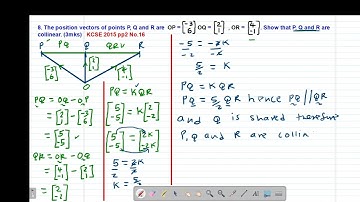 8. The position vectors of points P, Q and R are OP = [-3 6] OQ = [2 1] , OR = [4 -1] Show that P,Q and R are
collinear. (3mks) KCSE 2015 pp2 No.16
P PQ Q QR R
[-3 6] [2 1] [4 -1]
O
PQ = OQ - OP
= [2 1] - [-3 6]
= [5 -5]
QR = OR - OQ
= [4 -1] - [2 1]
= [2 -2]
PQ = KQR
[5 -5] = K[2 -2]
[5 -5] = [2K -2K]
5/2 = 2K/2
K = 5/2
-5/-2 = -2K/-2
5/2 = K
PQ = KQR
PQ = 5/2 QR hence PQ // QR
and Q is shared therefore
P, Q and R are collin